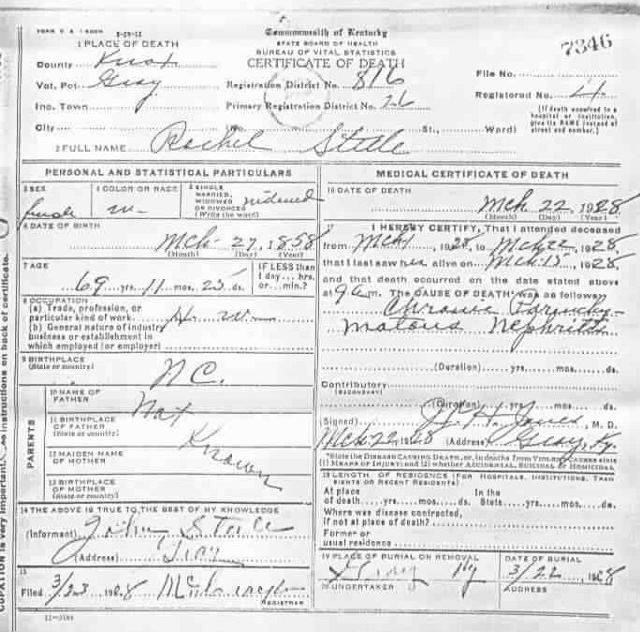 Commonwealth of Kentucky
STATE BOARD OF HEALTH
BUREAU OF VITAL STATISTICS
CERTIFICATE OF DEATH
7346
1 PLACE OF DEATH
County Knox
Vot. Pct. Gray
Registration District No. 816
File No.
Inc. Town
Primary Registration District No. 26
Registered No. 24
City No. St., Ward)
[If death occurred in a hospital or institution, give its NAME instead of street and number.]
2 FULL NAME Rachel Steele
PERSONAL AND STATISTICAL PARTICULARS
3 SEX female
4 COLOR OR RACE W
5 SINGLE, MARRIED, WIDOWED OR DIVORCED (Write the word) widowed
6 DATE OF BIRTH Mch 27, 1858
(Month) (Day) (Year)
7 AGE 69 yrs. 11 mos. 25 ds.
IF LESS than 1 day... hrs. or... min.?
8 OCCUPATION
(a) Trade, profession, or particular kind of work H. W.
(b) General nature of industry business or establishment in which employed (or employer)
9 BIRTHPLACE (State or country) N C.
PARENTS
10 NAME OF FATHER Not
11 BIRTHPLACE OF FATHER (State or country) Known
12 MAIDEN NAME OF MOTHER
13 BIRTHPLACE OF MOTHER (State or country)
14 THE ABOVE IS TRUE TO THE BEST OF MY KNOWLEDGE
(Informant) John Steele
(Address) Gray
15
Filed 3/23 1928
REGISTRAR
MEDICAL CERTIFICATE OF DEATH
16 DATE OF DEATH Mch 22 1928
(Month) (Day) (Year)
17 I HEREBY CERTIFY, That I attended deceased
from Mch 1, 1928, to Mch 22, 1928
that I last saw her alive on Mch 15, 1928,
and that death occurred on the date stated above
at 9 a m. The CAUSE OF DEATH was as follows:
Chronic Parenchy-
matous Nephritis
(Duration) yrs. mos. ds.
Contributory
(SECONDARY)
(Duration) yrs. mos. ds.
(Signed) J. H. Jones, M. D.
Mch 22 1928 (Address) Gray, Ky.
*State the DISEASE CAUSING DEATH, or, in deaths from VIOLENT CAUSES state (1) MEANS OF INJURY; and (2) whether ACCIDENTAL, SUICIDAL or HOMICIDAL.
18 LENGTH OF RESIDENCE (FOR HOSPITALS, INSTITUTIONS, TRANSIENTS OR RECENT RESIDENTS).
At place of death yrs. mos. ds. In the State yrs. mos. ds.
Where was disease contracted, if not at place of death?
Former or usual residence
19 PLACE OF BURIAL OR REMOVAL Gray Ky
DATE OF BURIAL 3/22, 1928
20 UNDERTAKER
ADDRESS